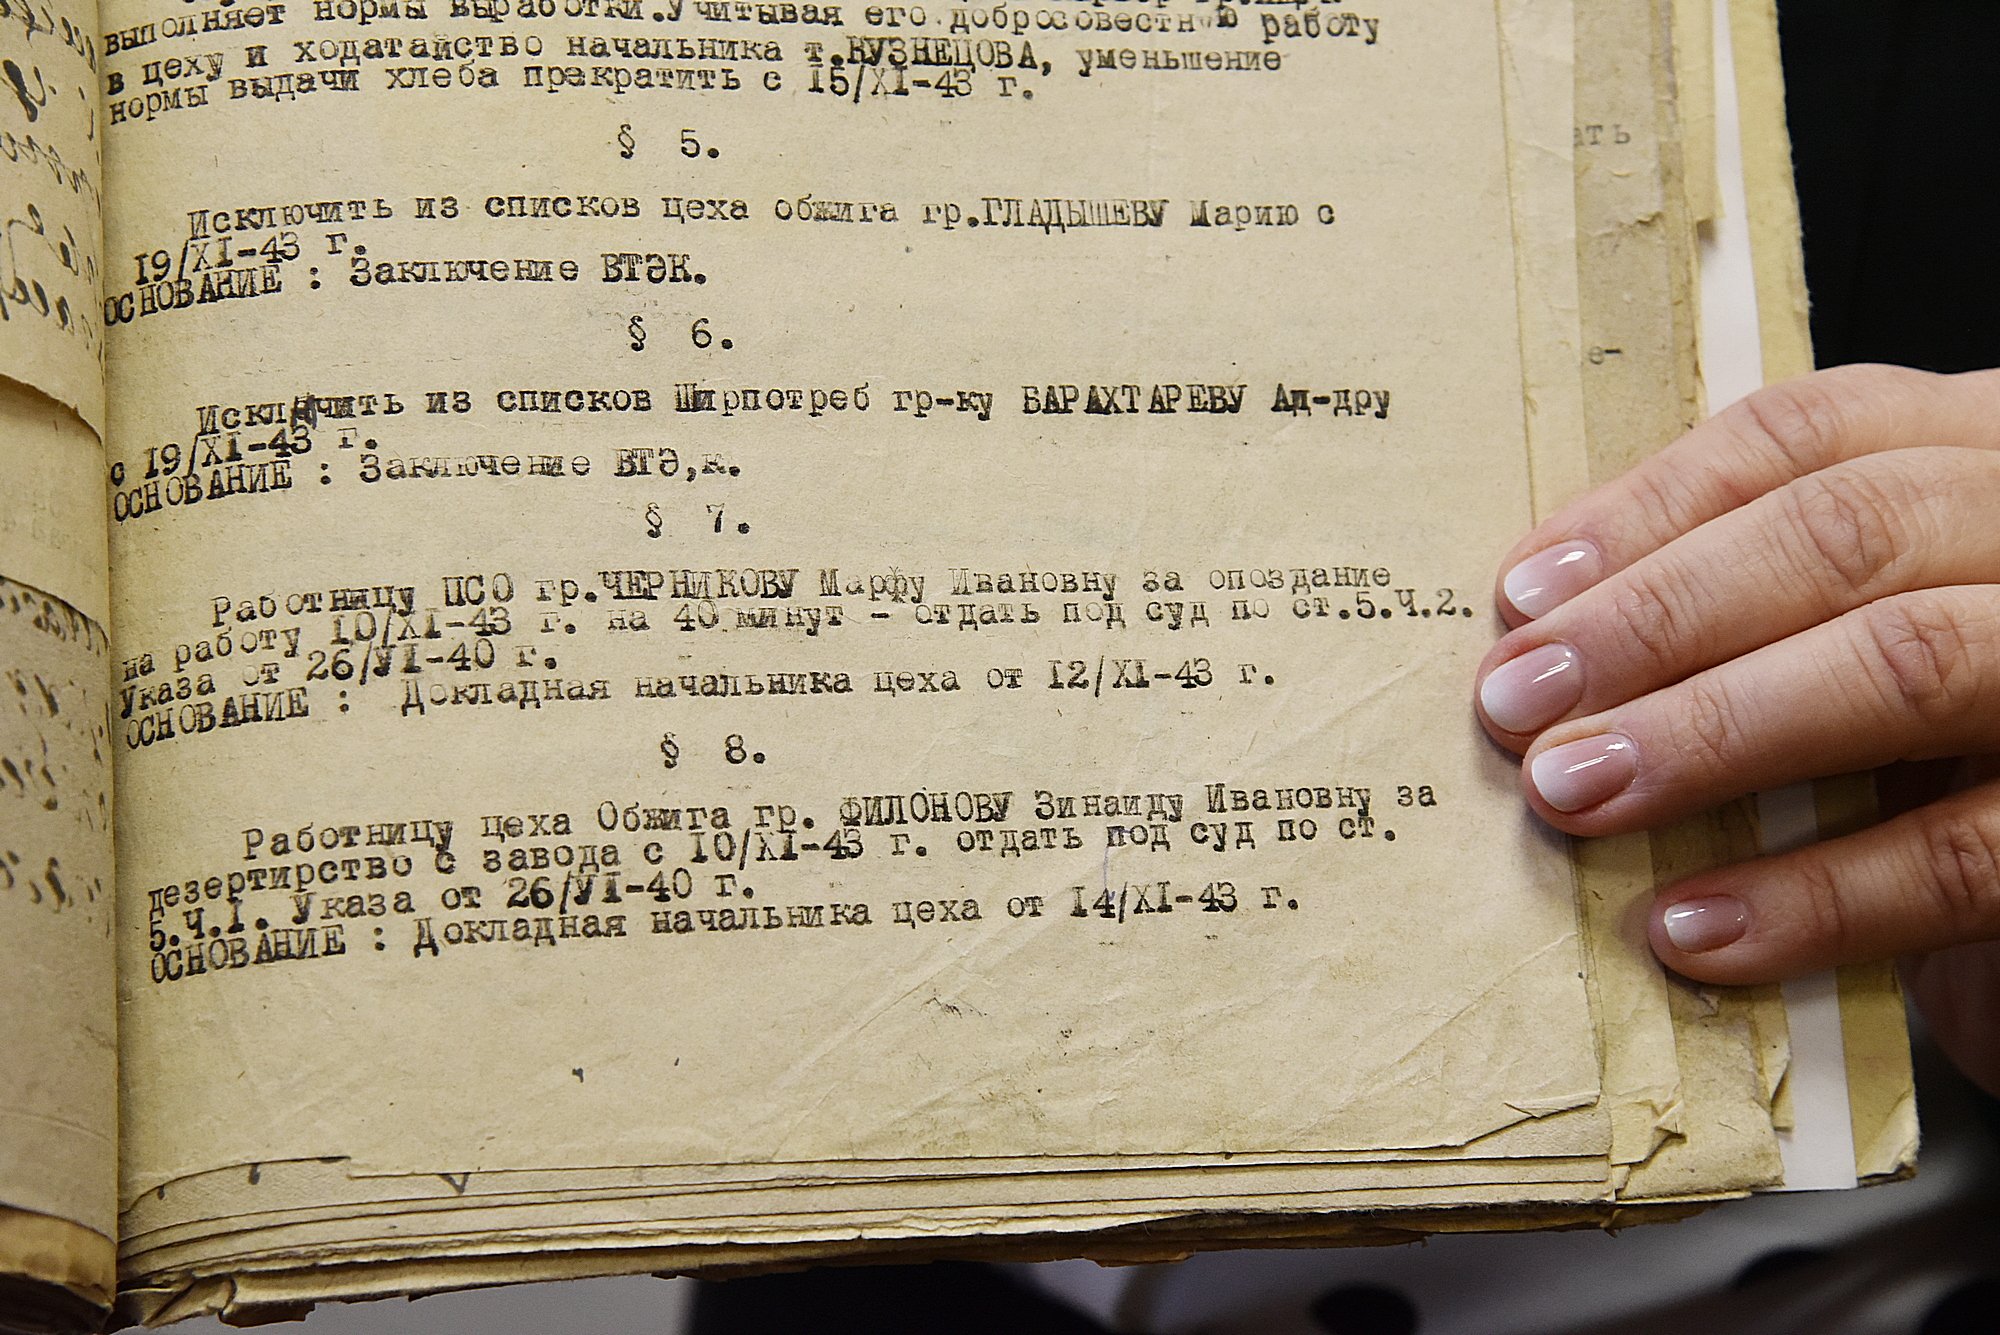 выполняет нормы выработки.Учитывая его добросовестную работу
в цеху и ходатайство начальника т.КУЗНЕЦОВА, уменьшение
нормы выдачи хлеба прекратить с 15/XI-43 г.
§ 5.
Исключить из списков цеха обжига гр.ГЛАДЫШЕВУ Марию с
19/XI-43 г.
ОСНОВАНИЕ : Заключение ВТЭК.
§ 6.
Исключить из списков Ширпотреб гр-ку БАРАХТАРЕВУ Ад-дру
с 19/XI-43 г.
ОСНОВАНИЕ : Заключение ВТЭ,к.
§ 7.
Работницу ПСО гр.ЧЕРНИКОВУ Марфу Ивановну за опоздание
на работу 10/XI-43 г. на 40 минут - отдать под суд по ст.5.Ч.2.
Указа от 26/УI-40 г.
ОСНОВАНИЕ : Докладная начальника цеха от 12/XI-43 г.
§ 8.
Работницу цеха Обжига гр. ФИЛОНОВУ Зинаиду Ивановну за
дезертирство с завода с 10/XI-43 г. отдать под суд по ст.
5.Ч.1. Указа от 26/УI-40 г.
ОСНОВАНИЕ : Докладная начальника цеха от 14/XI-43 г.